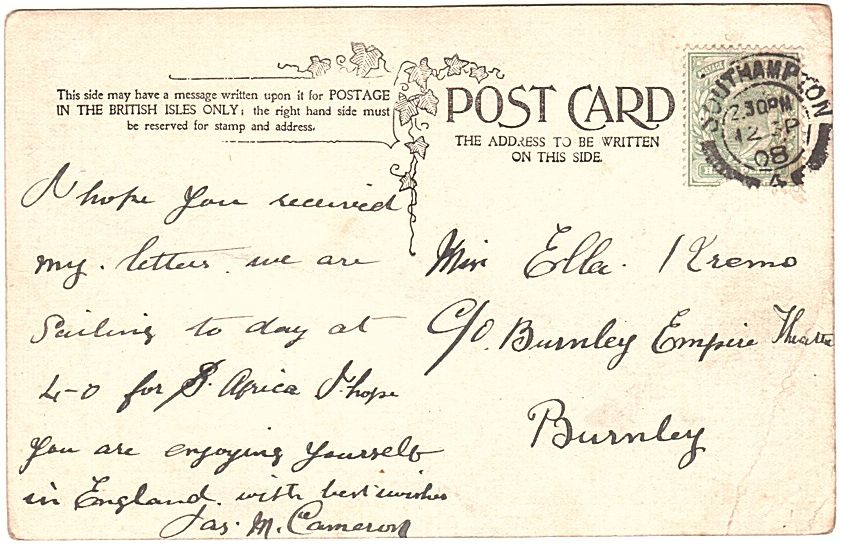 This side may have a message written upon it for POSTAGE
IN THE BRITISH ISLES ONLY; the right hand side must
be reserved for stamp and address.
POST CARD
THE ADDRESS TO BE WRITTEN
ON THIS SIDE.
SOUTHAMPTON
2.30PM
12 SP
08
I hope you received
my. letters. we are
Sailing to day at
4-0 for S. Africa I hope
you are enjoying yourself
in England. with best wishes
Jas. M. Cameron
Miss Ella. Kremo
C/o. Burnley Empire Theatre
Burnley